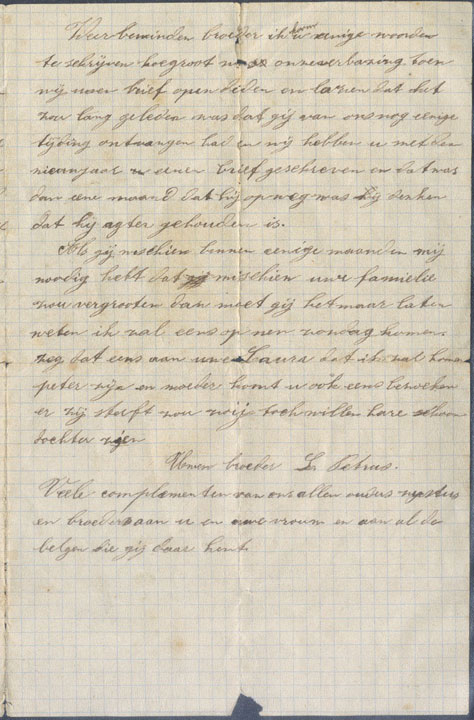 Weer beminden broeder ik kom u eenige woorden
te schrijven hoe groot was onse verbazing toen
wij uwen brief open deden en lazen dat het
zou lang geleden was dat gij van ons nog eenige
tijding ontvangen had en wij hebben u met den
nieuwjaar u eenen brief geschreven en dat was
dan eene maand dat hij op weg was Wij denken
dat hij agter gehouden is.
Als gij misschien binnen eenige maanden mij
noodig hebt dat mischien uwe famielie
zou vergrooten dan moet gij het maar laten
weten ik zal eens op nen zondag komen.
zeg dat eens aan uwe Laura dat ik zal komen
peter zijn en moeder komt u ook eens bezoeken
er zij stoeft zou zij toch willen hare schoon
dochter zien
Uwen broeder L. Petrus.
Veele complementen van ons allen ouders zusters
en broeders aan u en uwe vrouw en aan al de
belgen die gij daar kent.